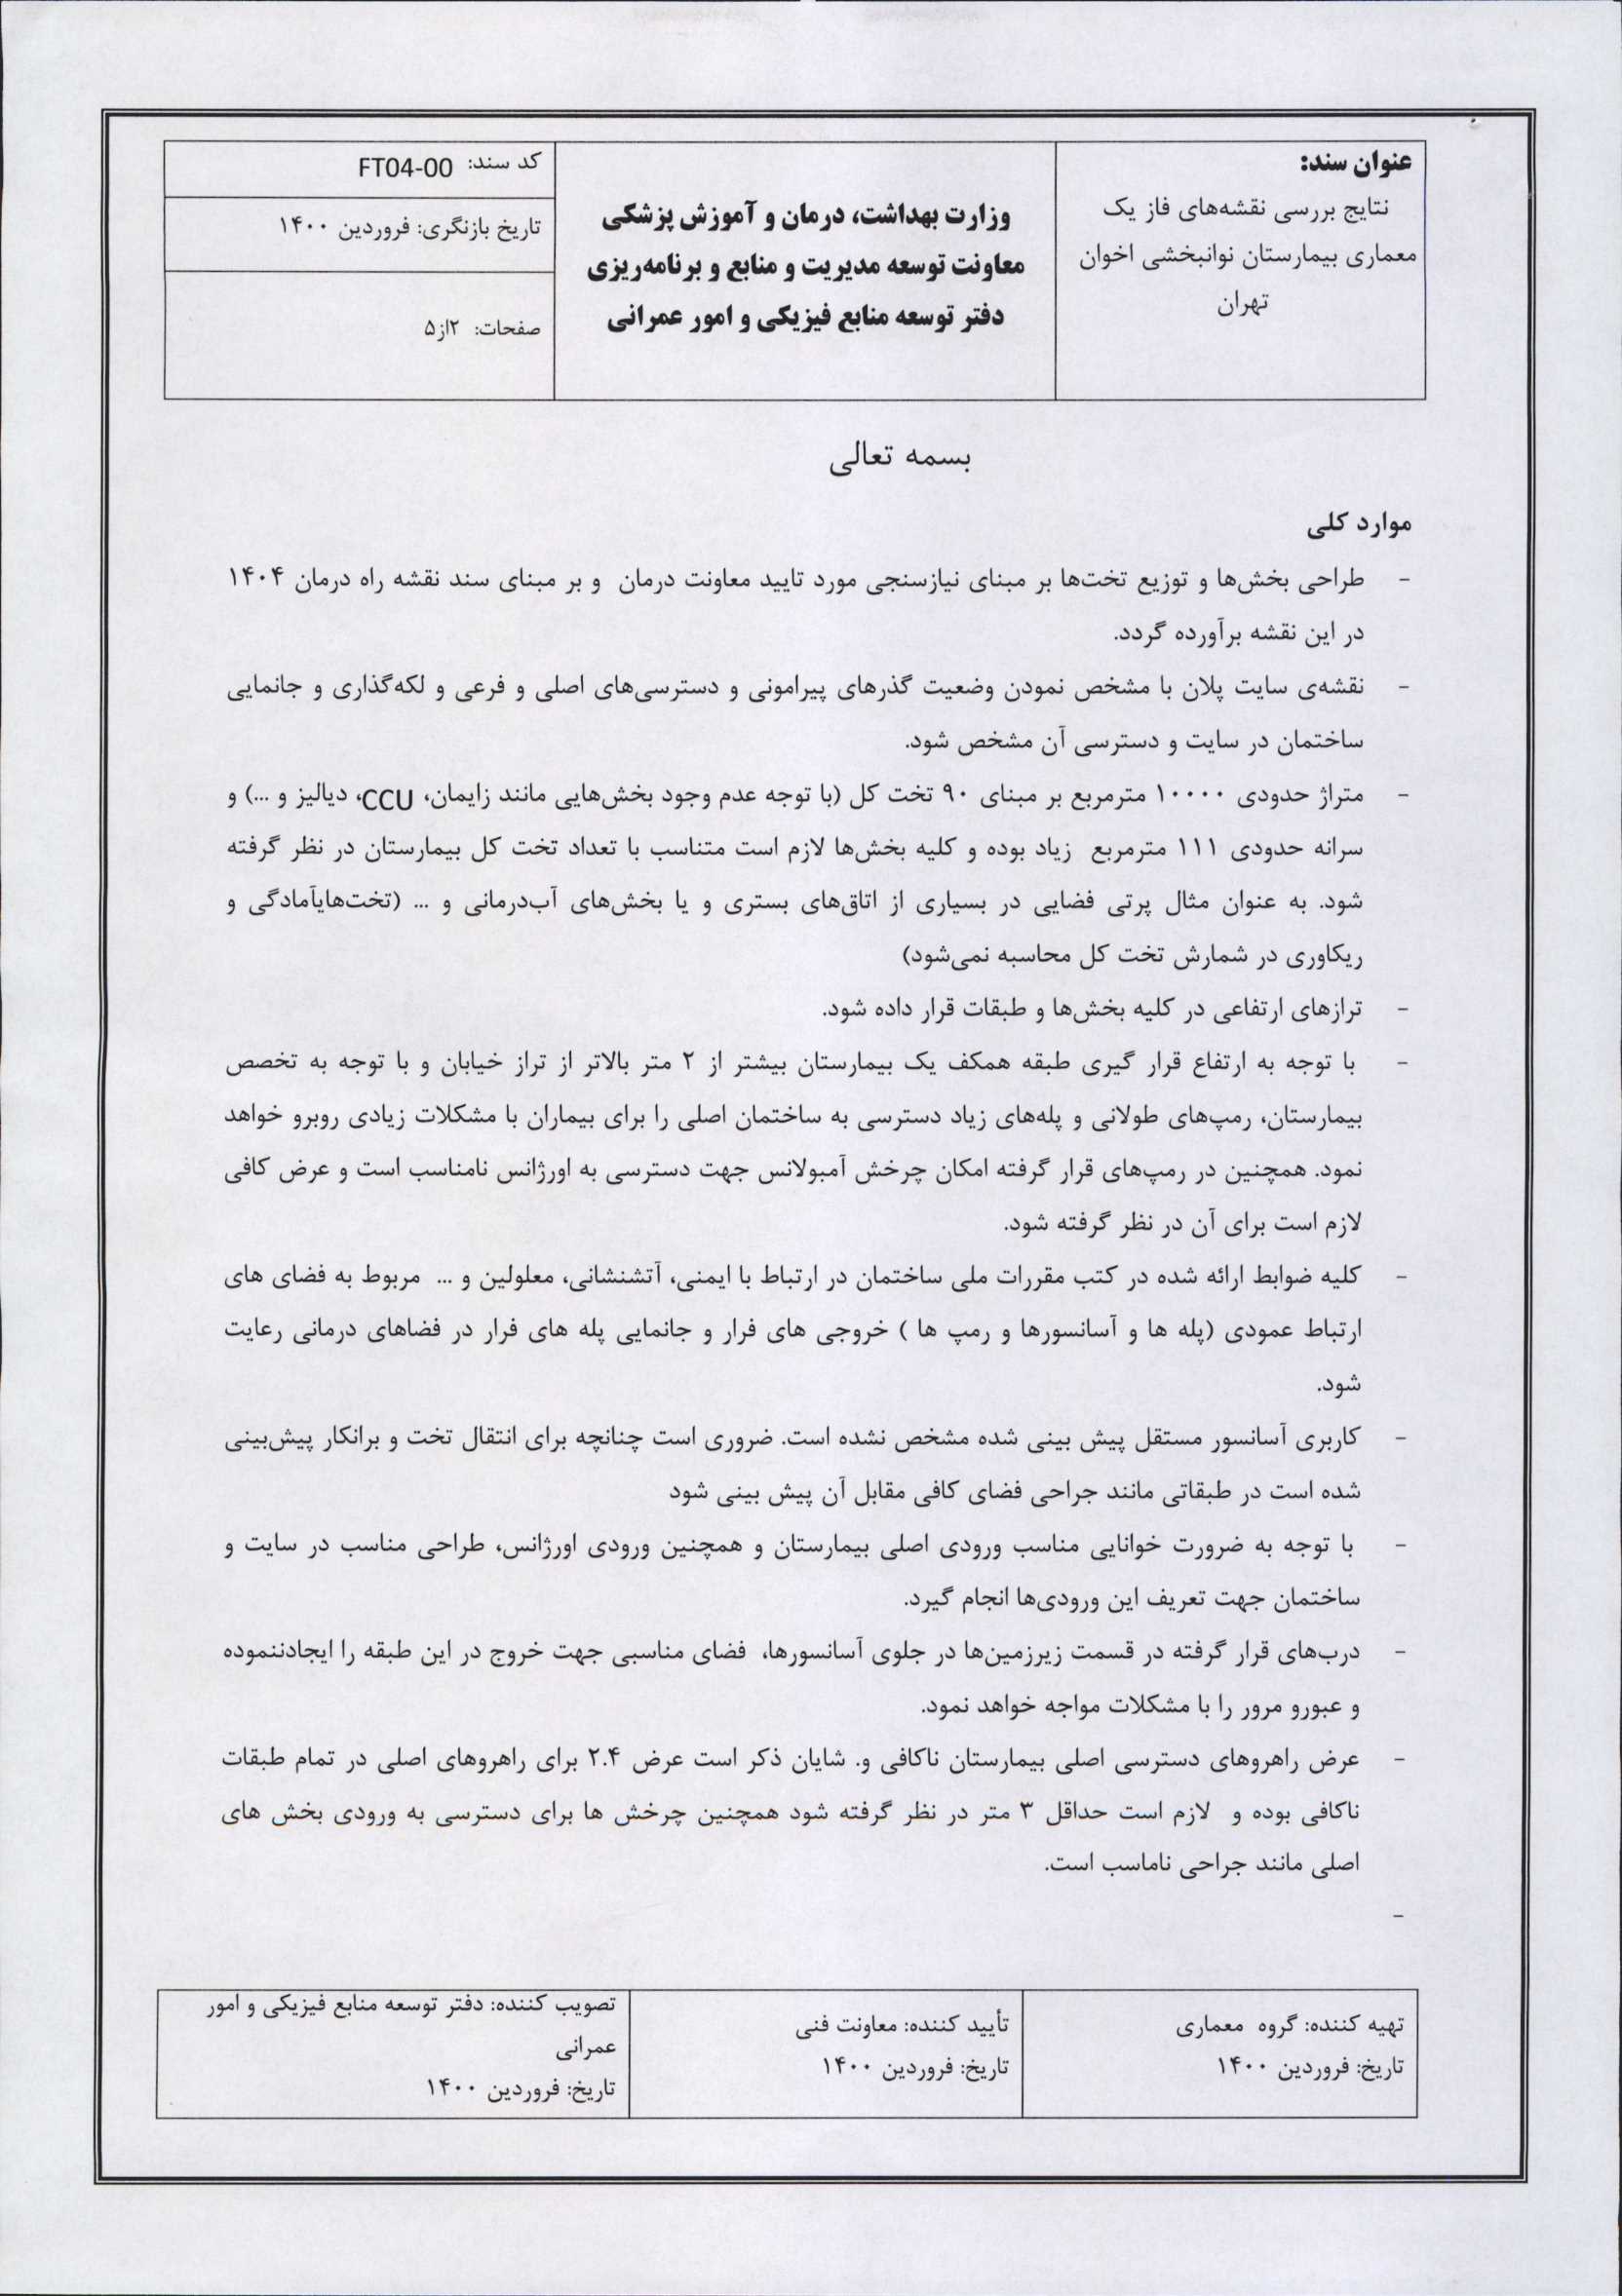 عنوان سند:
نتایج بررسی نقشه‌های فاز یک
معماری بیمارستان نوانبخشی اخوان
تهران
وزارت بهداشت، درمان و آموزش پزشکی
معاونت توسعه مدیریت و منابع و برنامه‌ریزی
دفتر توسعه منابع فیزیکی و امور عمرانی
کد سند: FT04-00
تاریخ بازنگری: فروردین ۱۴۰۰
صفحات: ۲از۵
بسمه تعالی
موارد کلی
- طراحی بخش‌ها و توزیع تخت‌ها بر مبنای نیازسنجی مورد تایید معاونت درمان و بر مبنای سند نقشه راه درمان ۱۴۰۴
در این نقشه برآورده گردد.
- نقشه‌ی سایت پلان با مشخص نمودن وضعیت گذرهای پیرامونی و دسترسی‌های اصلی و فرعی و لکه‌گذاری و جانمایی
ساختمان در سایت و دسترسی آن مشخص شود.
- متراژ حدودی ۱۰۰۰۰ مترمربع بر مبنای ۹۰ تخت کل (با توجه عدم وجود بخش‌هایی مانند زایمان، CCU، دیالیز و ...) و
سرانه حدودی ۱۱۱ مترمربع زیاد بوده و کلیه بخش‌ها لازم است متناسب با تعداد تخت کل بیمارستان در نظر گرفته
شود. به عنوان مثال پرتی فضایی در بسیاری از اتاق‌های بستری و یا بخش‌های آب‌درمانی و ... (تخت‌هایآمادگی و
ریکاوری در شمارش تخت کل محاسبه نمی‌شود)
- ترازهای ارتفاعی در کلیه بخش‌ها و طبقات قرار داده شود.
- با توجه به ارتفاع قرار گیری طبقه همکف یک بیمارستان بیشتر از ۲ متر بالاتر از تراز خیابان و با توجه به تخصص
بیمارستان، رمپ‌های طولانی و پله‌های زیاد دسترسی به ساختمان اصلی را برای بیماران با مشکلات زیادی روبرو خواهد
نمود. همچنین در رمپ‌های قرار گرفته امکان چرخش آمبولانس جهت دسترسی به اورژانس نامناسب است و عرض کافی
لازم است برای آن در نظر گرفته شود.
- کلیه ضوابط ارائه شده در کتب مقررات ملی ساختمان در ارتباط با ایمنی، آتشنشانی، معلولین و ... مربوط به فضای های
ارتباط عمودی (پله ها و آسانسورها و رمپ ها ) خروجی های فرار و جانمایی پله های فرار در فضاهای درمانی رعایت
شود.
- کاربری آسانسور مستقل پیش بینی شده مشخص نشده است. ضروری است چنانچه برای انتقال تخت و برانکار پیش‌بینی
شده است در طبقاتی مانند جراحی فضای کافی مقابل آن پیش بینی شود
- با توجه به ضرورت خوانایی مناسب ورودی اصلی بیمارستان و همچنین ورودی اورژانس، طراحی مناسب در سایت و
ساختمان جهت تعریف این ورودی‌ها انجام گیرد.
- درب‌های قرار گرفته در قسمت زیرزمین‌ها در جلوی آسانسورها، فضای مناسبی جهت خروج در این طبقه را ایجادننموده
و عبورو مرور را با مشکلات مواجه خواهد نمود.
- عرض راهروهای دسترسی اصلی بیمارستان ناکافی و. شایان ذکر است عرض ۲.۴ برای راهروهای اصلی در تمام طبقات
ناکافی بوده و لازم است حداقل ۳ متر در نظر گرفته شود همچنین چرخش ها برای دسترسی به ورودی بخش های
اصلی مانند جراحی ناماسب است.
-
تهیه کننده: گروه معماری
تاریخ: فروردین ۱۴۰۰
تأیید کننده: معاونت فنی
تاریخ: فروردین ۱۴۰۰
تصویب کننده: دفتر توسعه منابع فیزیکی و امور
عمرانی
تاریخ: فروردین ۱۴۰۰